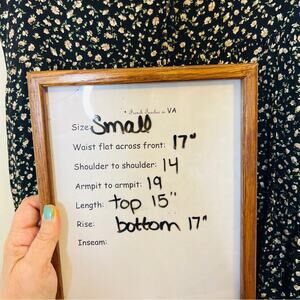 VA
Size: Small
Waist flat across front: 17"
Shoulder to shoulder: 14
Armpit to armpit: 19
Length: top 15"
Rise: bottom 17"
Inseam: